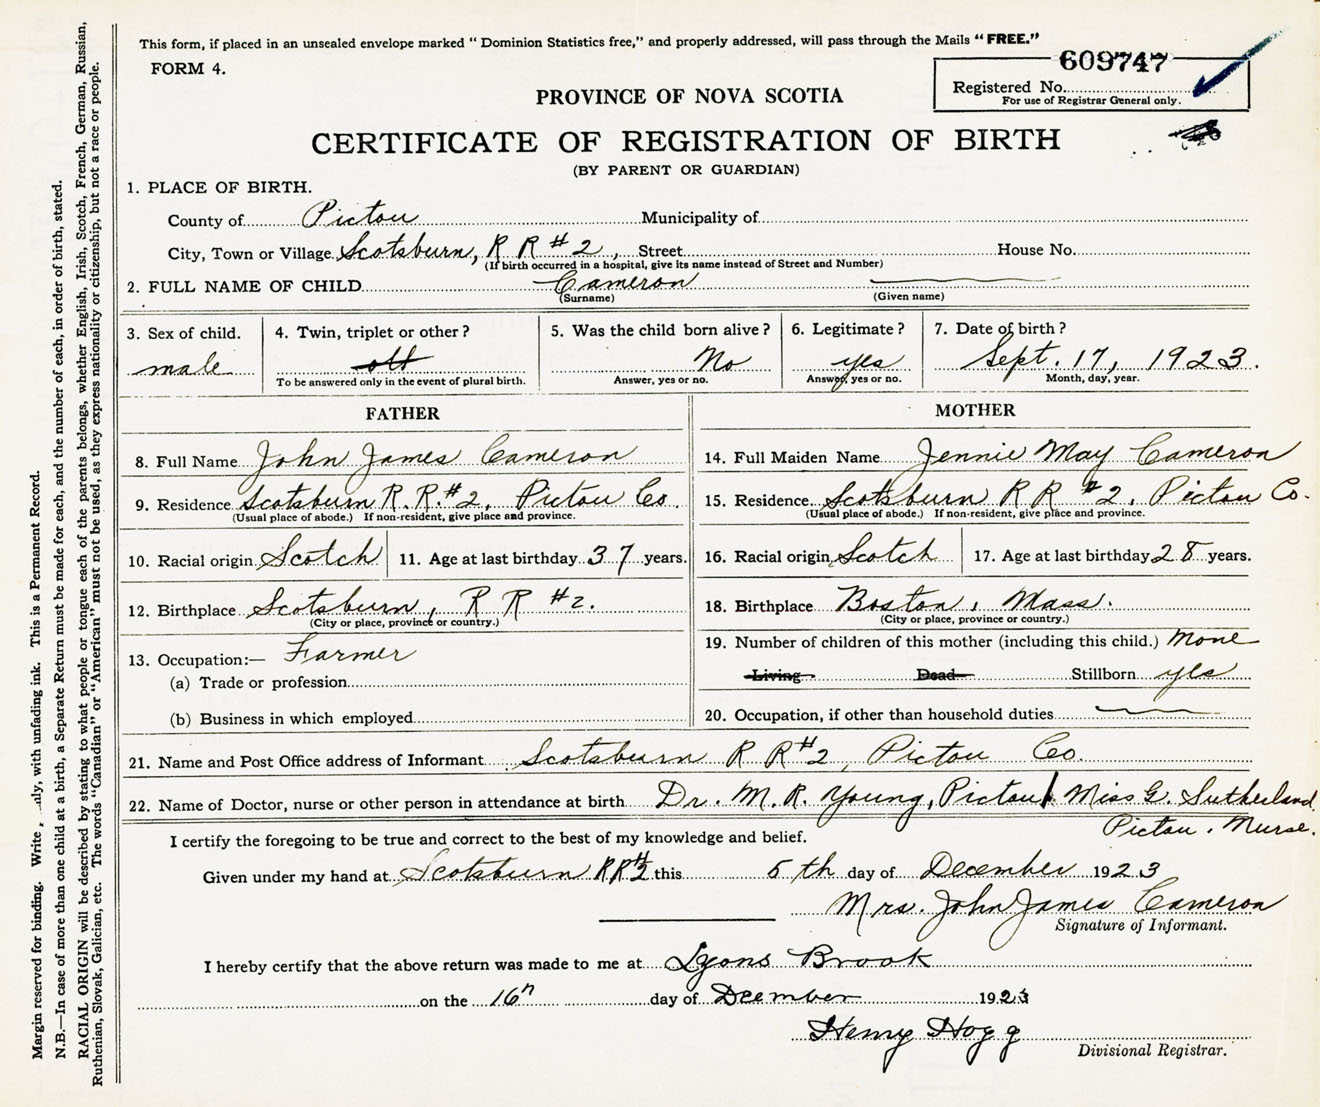 This form, if placed in an unsealed envelope marked "Dominion Statistics free," and properly addressed, will pass through the Mails "FREE."
FORM 4.
609747
Registered No.
For use of Registrar General only.
PROVINCE OF NOVA SCOTIA
CERTIFICATE OF REGISTRATION OF BIRTH
(BY PARENT OR GUARDIAN)
1. PLACE OF BIRTH.
County of Pictou Municipality of
City, Town or Village Scotsburn, R R #2, Street House No.
(If birth occurred in a hospital, give its name instead of Street and Number)
2. FULL NAME OF CHILD Cameron
(Surname) (Given name)
3. Sex of child. 4. Twin, triplet or other? 5. Was the child born alive? 6. Legitimate? 7. Date of birth?
male No yes Sept. 17, 1923.
To be answered only in the event of plural birth. Answer, yes or no. Answer, yes or no. Month, day, year.
FATHER
8. Full Name John James Cameron
9. Residence Scotsburn R.R.#2, Pictou Co.
(Usual place of abode.) If non-resident, give place and province.
10. Racial origin Scotch 11. Age at last birthday 37 years.
12. Birthplace Scotsburn, R R #2.
(City or place, province or country.)
13. Occupation:— Farmer
(a) Trade or profession
(b) Business in which employed
MOTHER
14. Full Maiden Name Jennie May Cameron
15. Residence Scotsburn R R #2. Pictou Co.
(Usual place of abode.) If non-resident, give place and province.
16. Racial origin Scotch 17. Age at last birthday 28 years.
18. Birthplace Boston, Mass.
(City or place, province or country.)
19. Number of children of this mother (including this child.) None
Living Dead Stillborn yes
20. Occupation, if other than household duties
21. Name and Post Office address of Informant Scotsburn R R #2, Pictou Co.
22. Name of Doctor, nurse or other person in attendance at birth Dr. M. R. Young, Pictou Miss G. Sutherland
Pictou. Nurse.
I certify the foregoing to be true and correct to the best of my knowledge and belief.
Given under my hand at Scotsburn RR#2 this 5th day of December 1923
Mrs. John James Cameron
Signature of Informant.
I hereby certify that the above return was made to me at Lyons Brook
on the 16th day of December 1923
Henry Hogg
Divisional Registrar.
Margin reserved for binding. Write with unfading ink. This is a Permanent Record.
N.B.—In case of more than one child at a birth, a Separate Return must be made for each, and the number of each, in order of birth, stated.
RACIAL ORIGIN will be described by stating to what people or tongue each of the parents belongs, whether English, Irish, Scotch, French, German, Russian,
Ruthenian, Slovak, Galician, etc. The words "Canadian" or "American" must not be used, as they express nationality or citizenship, but not a race or people.